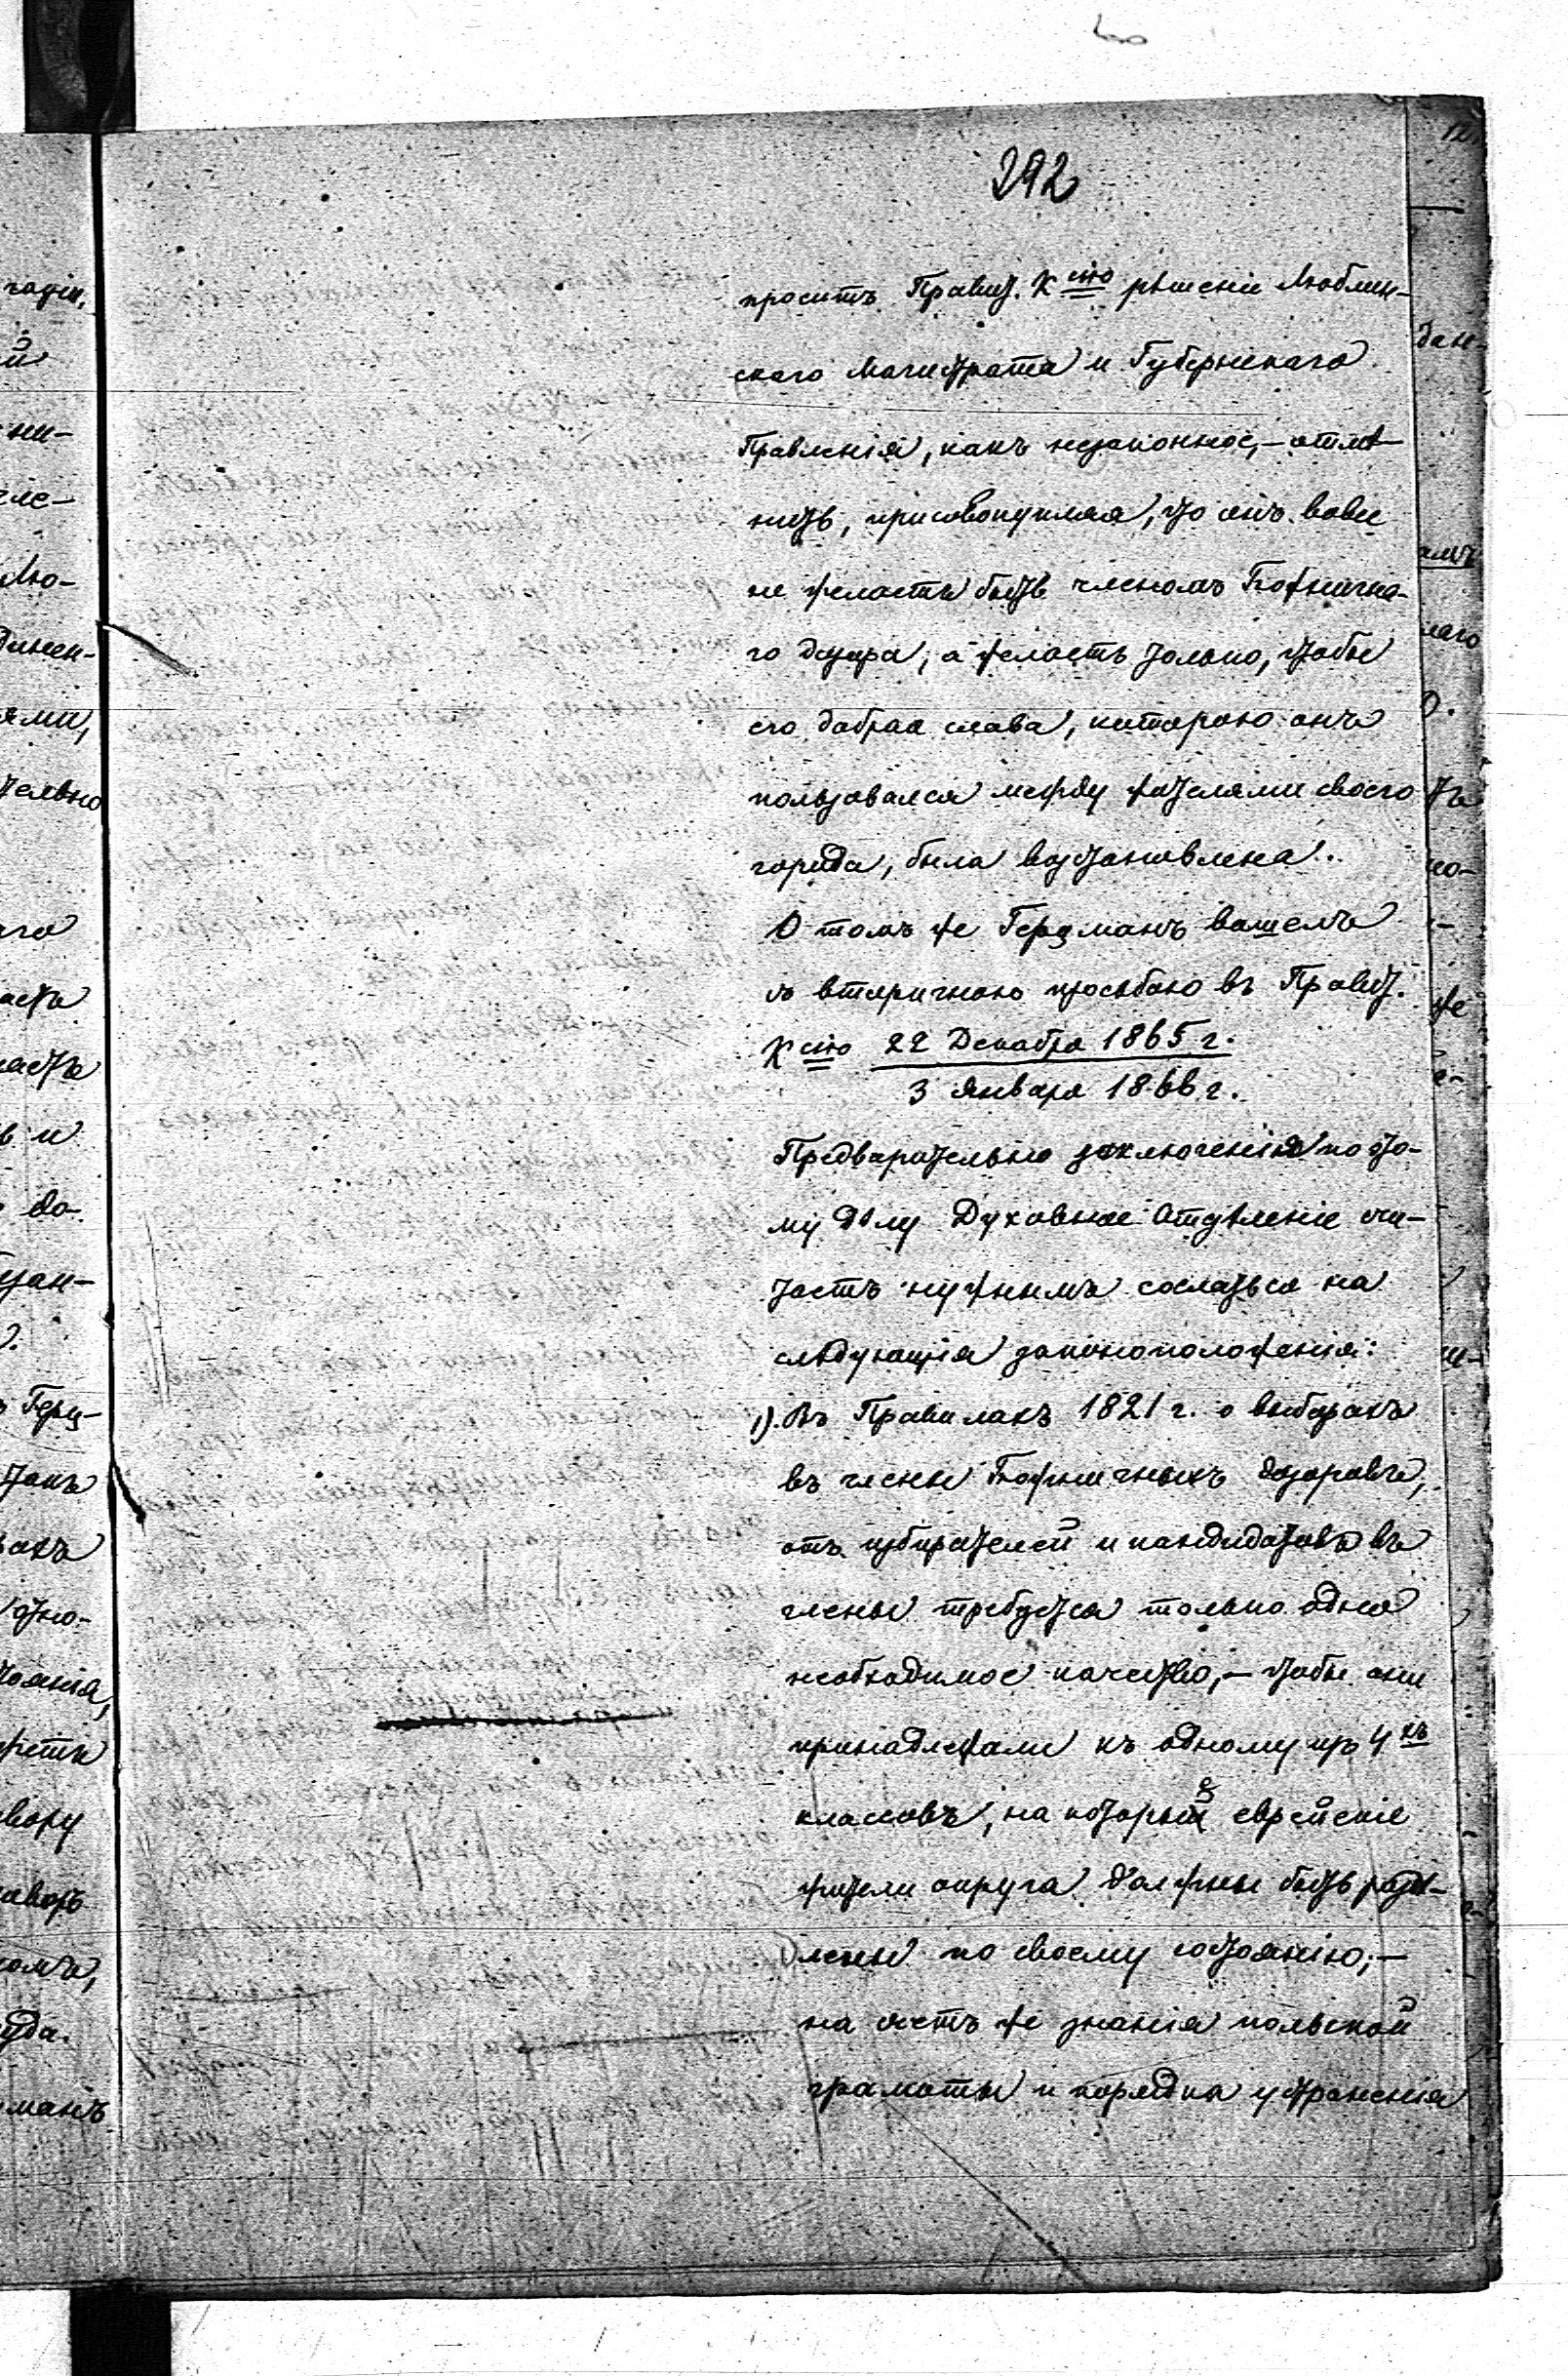 292
проситъ Правит. К сію рѣшеніе Люблин-
скаго Магистрата и Губернскаго
Правленія, какъ незаконное, – отмѣ-
нить, присовокупляя, что онъ вовсе
не желаетъ быть членомъ Божнична-
го дозора, а желаетъ только, чтобы
его добрая слава, которою онъ
пользовался между жителями своего
города, была возстановлена.
О томъ же Герцманъ вошелъ
съ вторичною просьбою въ Правит.
К сію 22 Декабря 1865 г.
3 Января 1866 г.
Предварительно заключенія по это-
му дѣлу Духовное Отдѣленіе счи-
таетъ нужнымъ сослаться на
слѣдующія законоположенія:
1). Въ Правилахъ 1821 г. о выборахъ
въ члены Божничныхъ дозоровъ,
отъ избирателей и кандидатовъ въ
члены требуется только одно
необходимое качество, – чтобы они
принадлежали къ одному изъ 4 хъ
классовъ, на которые еврейскіе
жители округа должны быть раздѣ-
лены по своему состоянію; –
на счетъ же знанія польской
грамоты и порядка устраненія